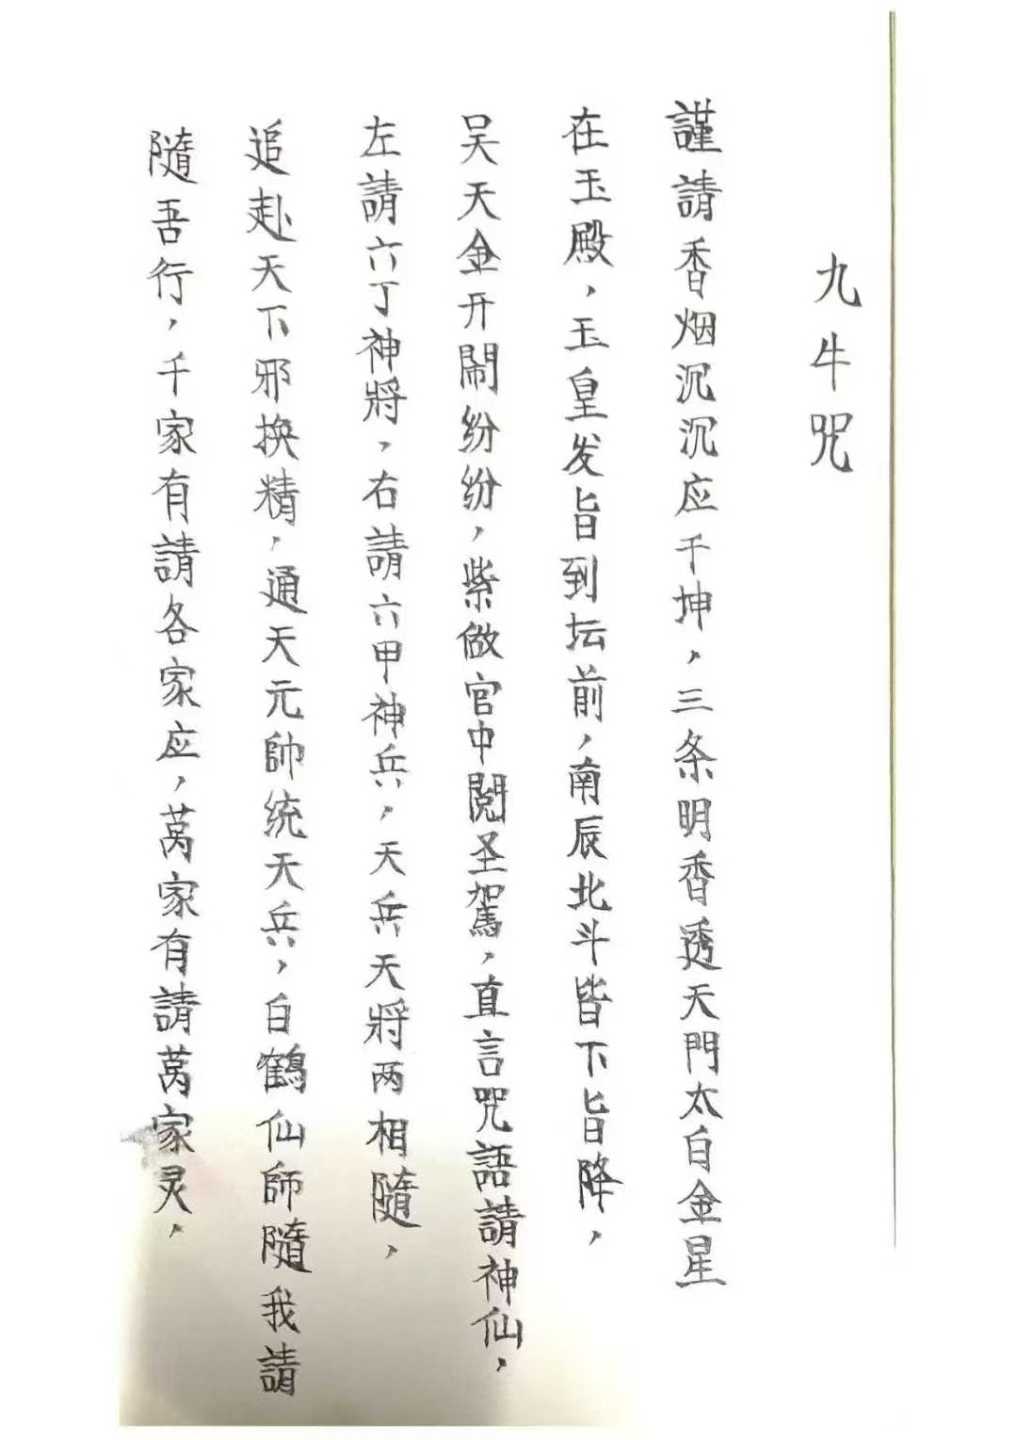 九牛咒
謹請香烟沉沉应干坤，三条明香透天門太白金星
在玉殿，玉皇发旨到坛前，南辰北斗皆下旨降，
吴天金开鬧纷纷，紫做官中閲圣駕，直言咒語請神仙，
左請六丁神將，右請六甲神兵，天兵天將两相隨，
追赴天下邪换精，通天元帥统天兵，白鶴仙師隨我請
隨吾行，千家有請各家应，萬家有請萬家灵，